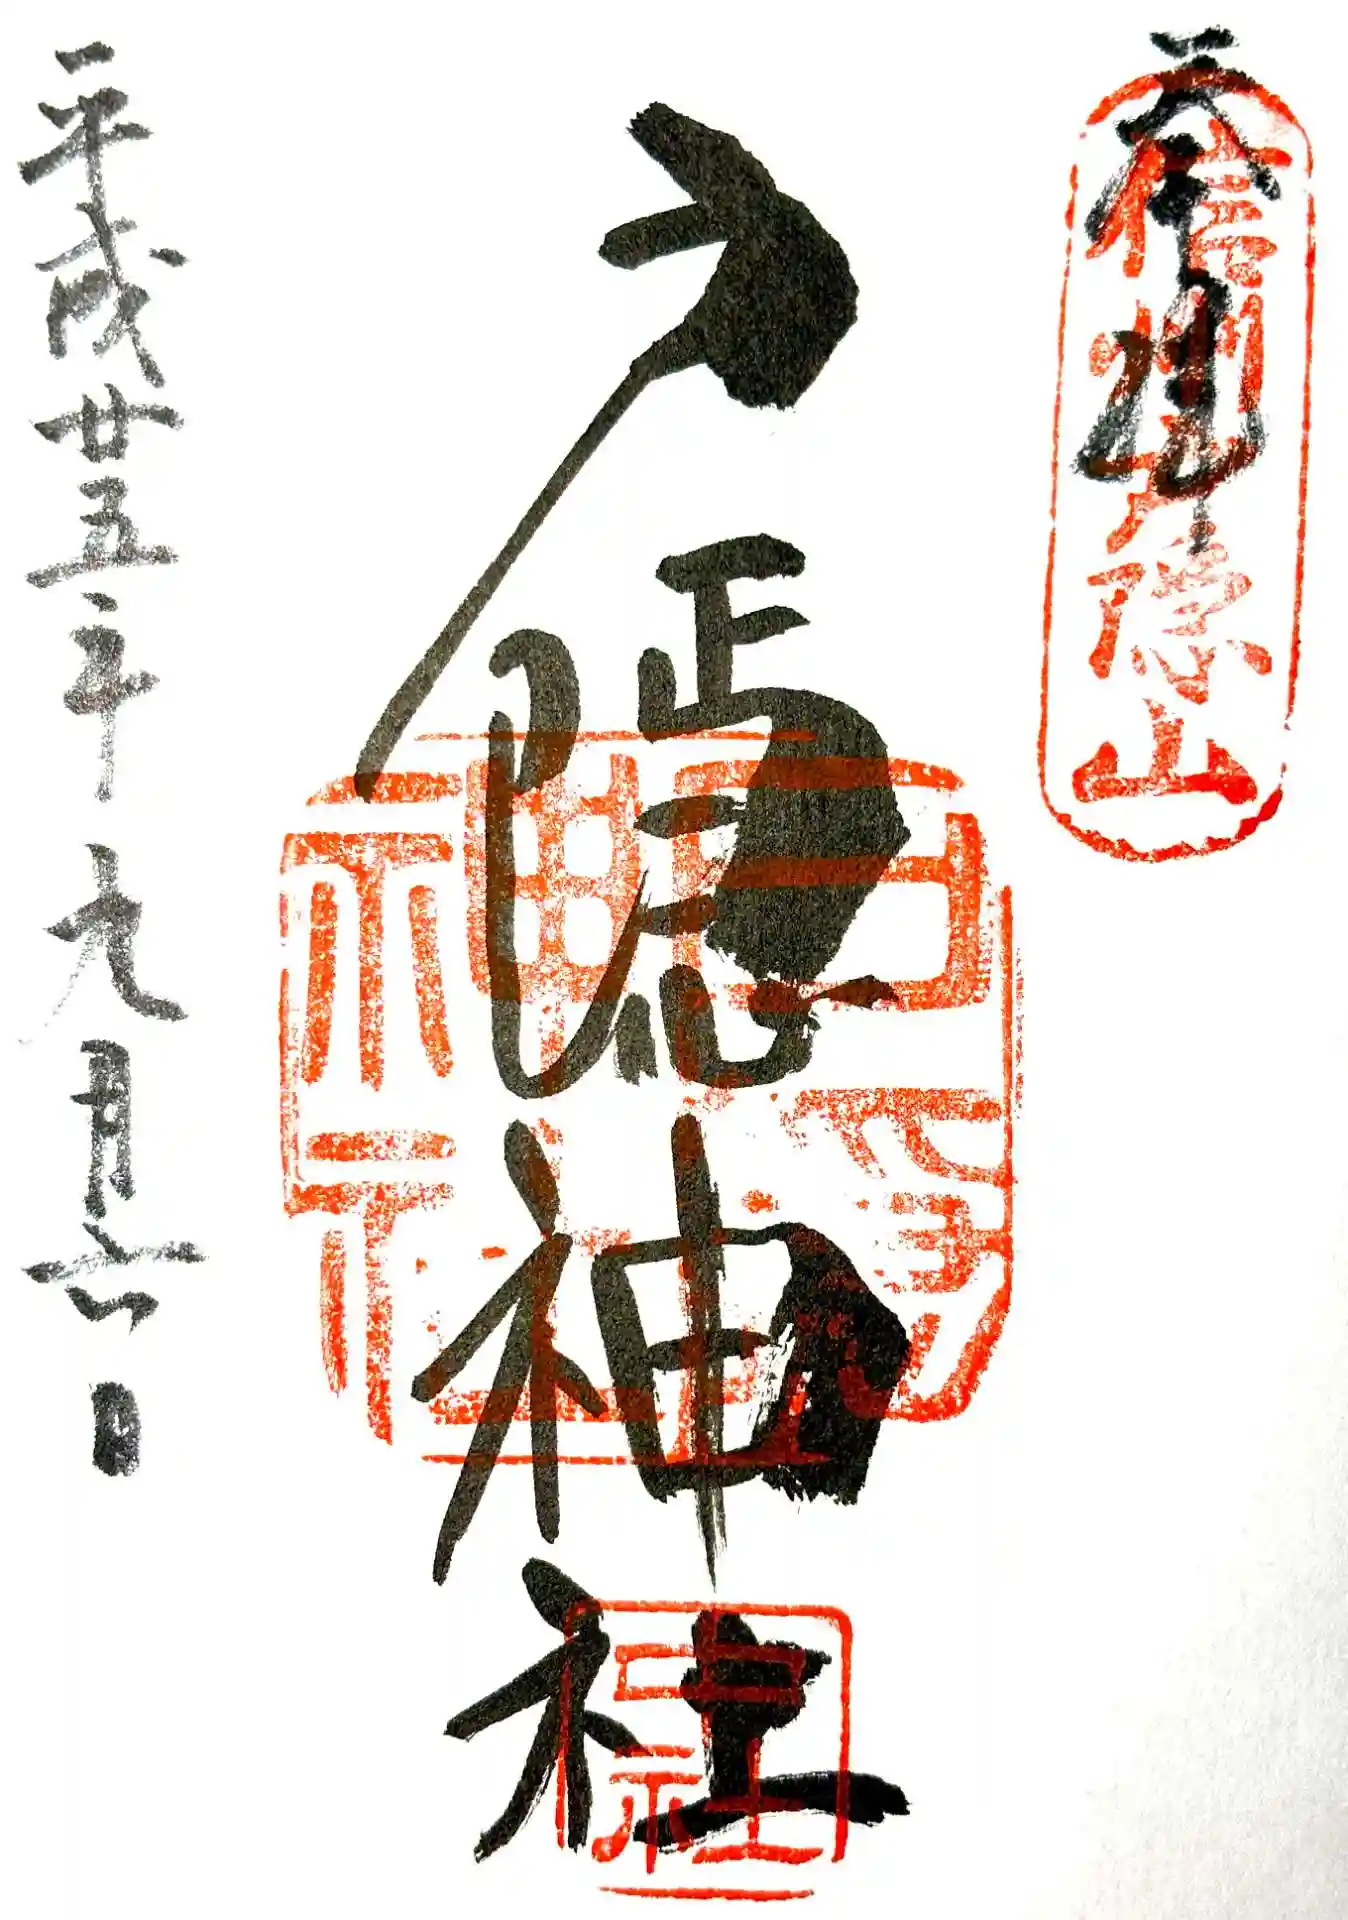 奉拝
信州戸隠山
戸隠神社
戸隠神社
中社
平成廿五年九月六日